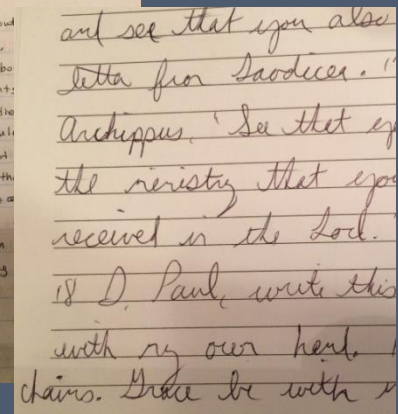 and see that you also
letter from Laodicea. "
Archippus, "See that y
the ministry that you
received in the Lord."
18 I, Paul, write this
with my own hand.
chains. Grace be with y